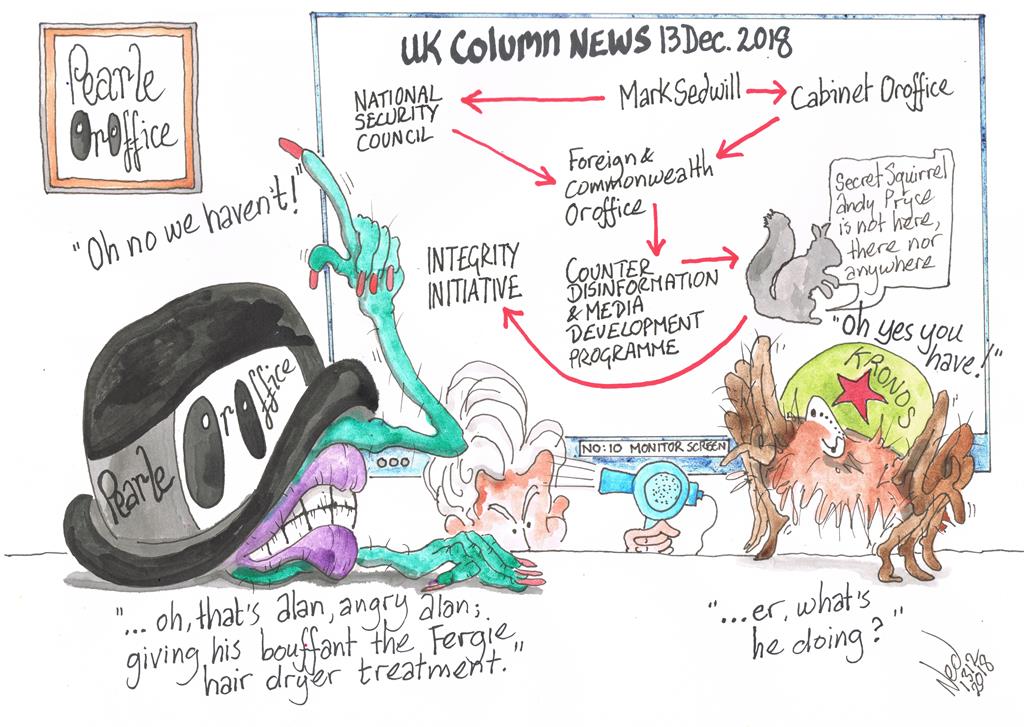 Pearle
OrOffice
UK COLUMN NEWS 13 Dec. 2018
NATIONAL
SECURITY
COUNCIL
Mark Sedwill
Cabinet Oroffice
Foreign &
Commonwealth
Oroffice
Secret Squirrel
Andy Pryce
is not here,
there nor
anywhere
"Oh no we haven't!"
INTEGRITY
INITIATIVE
COUNTER
DISINFORMATION
& MEDIA
DEVELOPMENT
PROGRAMME
"Oh yes you
have!"
KRONOS
Pearle
OrOffice
NO:10 MONITOR SCREEN
"... oh, that's alan, angry alan;
giving his bouffant the Fergie
hair dryer treatment."
"...er, what's
he doing?"
Ned
13/12
2018